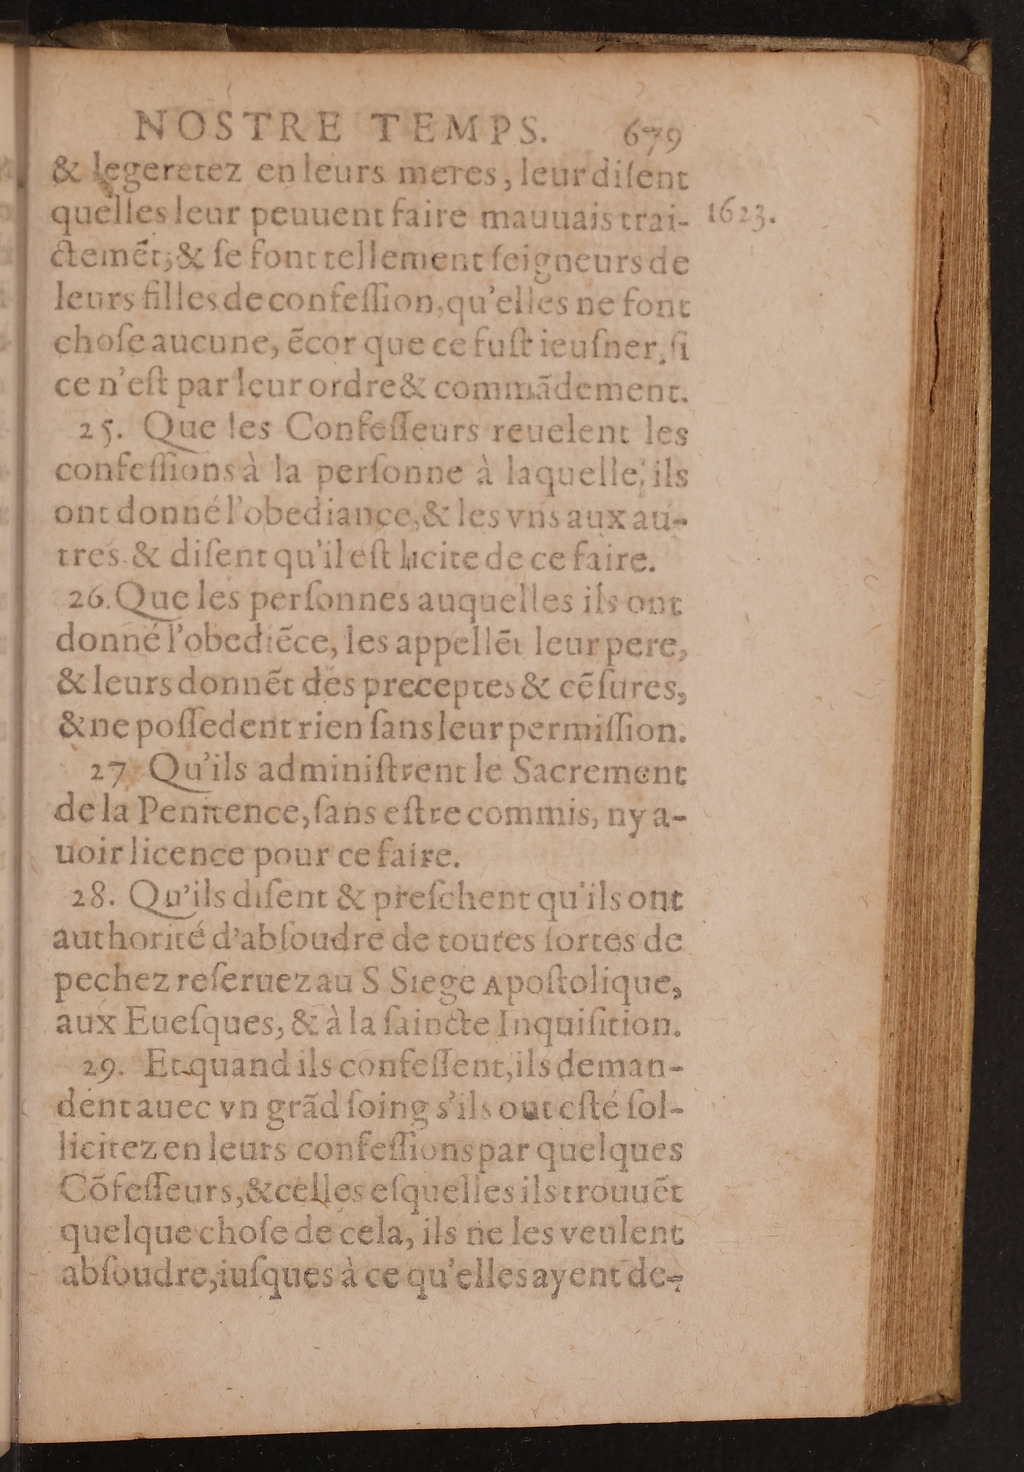 NOSTRE TEMPS. 679
& legeretez en leurs meres, leur diſent
quelles leur peuuent faire mauuais trai- 1623.
ctemẽt; & ſe font tellement ſeigneurs de
leurs filles de confeſſion, qu'elles ne font
choſe aucune, ẽcor que ce fuſt ieuſner, ſi
ce n'eſt par leur ordre & commãdement.
25. Que les Confeſſeurs reuelent les
confeſſions à la perſonne à laquelle, ils
ont donné l'obediance, & les vns aux au-
tres. & diſent qu'il eſt licite de ce faire.
26. Que les perſonnes auquelles ils ont
donné l'obediẽce, les appellẽt leur pere,
& leurs donnẽt des preceptes & cẽſures,
& ne poſſedent rien ſans leur permiſſion.
27. Qu'ils adminiſtrent le Sacrement
de la Penitence, ſans eſtre commis, ny a-
uoir licence pour ce faire.
28. Qu'ils diſent & preſchent qu'ils ont
authorité d'abſoudre de toutes ſortes de
pechez reſeruez au S Siege Apoſtolique,
aux Eueſques, & à la ſaincte Inquiſition.
29. Et quand ils confeſſent, ils deman-
dent auec vn grãd ſoing s'ils ont eſté ſol-
licitez en leurs confeſſions par quelques
Cõfeſſeurs, & celles eſquelles ils trouuẽt
quelque choſe de cela, ils ne les veulent
abſoudre, iuſques à ce qu'elles ayent de-